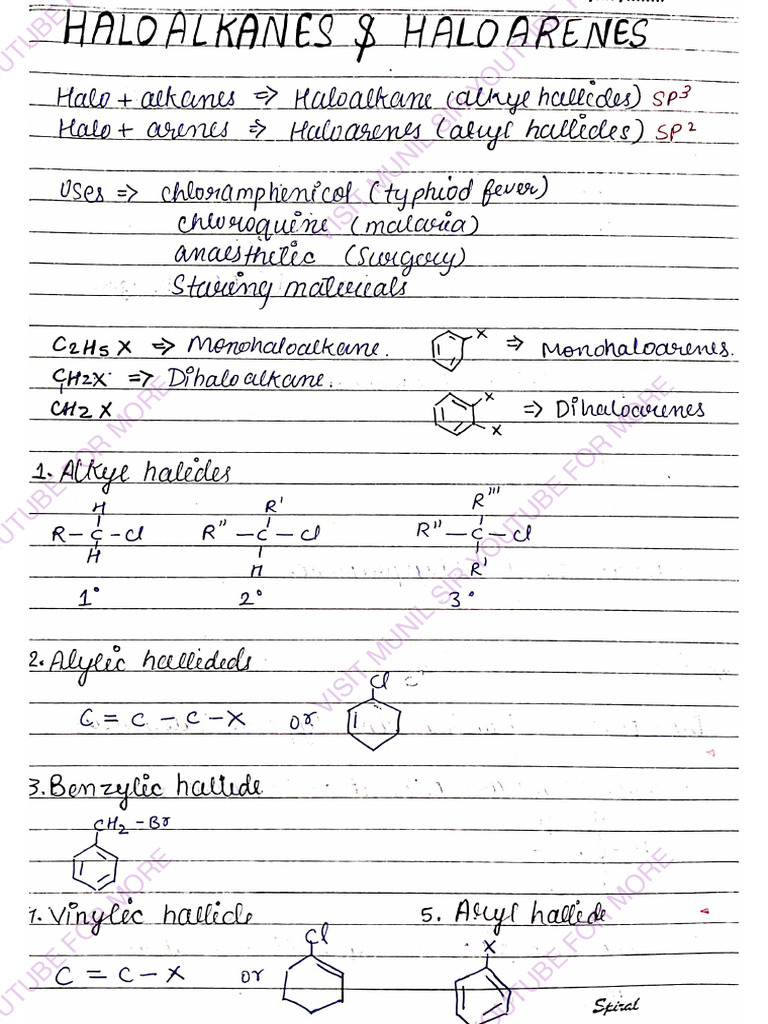 HALOALKANES & HALOARENES
Halo + alkanes => Haloalkane (alkye hallides) SP3
Halo + arenes => Haloarenes (aryl hallides) SP2
Uses => chloramphenicol (typhiod fever)
chloroquine (malaria)
anaesthetic (Surgery)
Staring materials
C2H5 X => Monohaloalkane.
X => Monohaloarenes.
CH2X => Dihaloalkane.
CH2 X
X
X
=> Dihaloarenes
1. Alkye halides
H R' R'''
R - C - Cl R'' - C - Cl R'' - C - Cl
H H R'
1° 2° 3°
2. Alylic hallideds
Cl
C = C - C - X or
3. Benzylic hallide
CH2 - Br
1. Vinylic hallide 5. Aryl hallide
Cl X
C = C - X or
Spiral
VISIT MUNIL SIR YOUTUBE FOR MORE
VISIT MUNIL SIR YOUTUBE FOR MORE
OUTUBE FOR MORE
OUTUBE FOR MORE